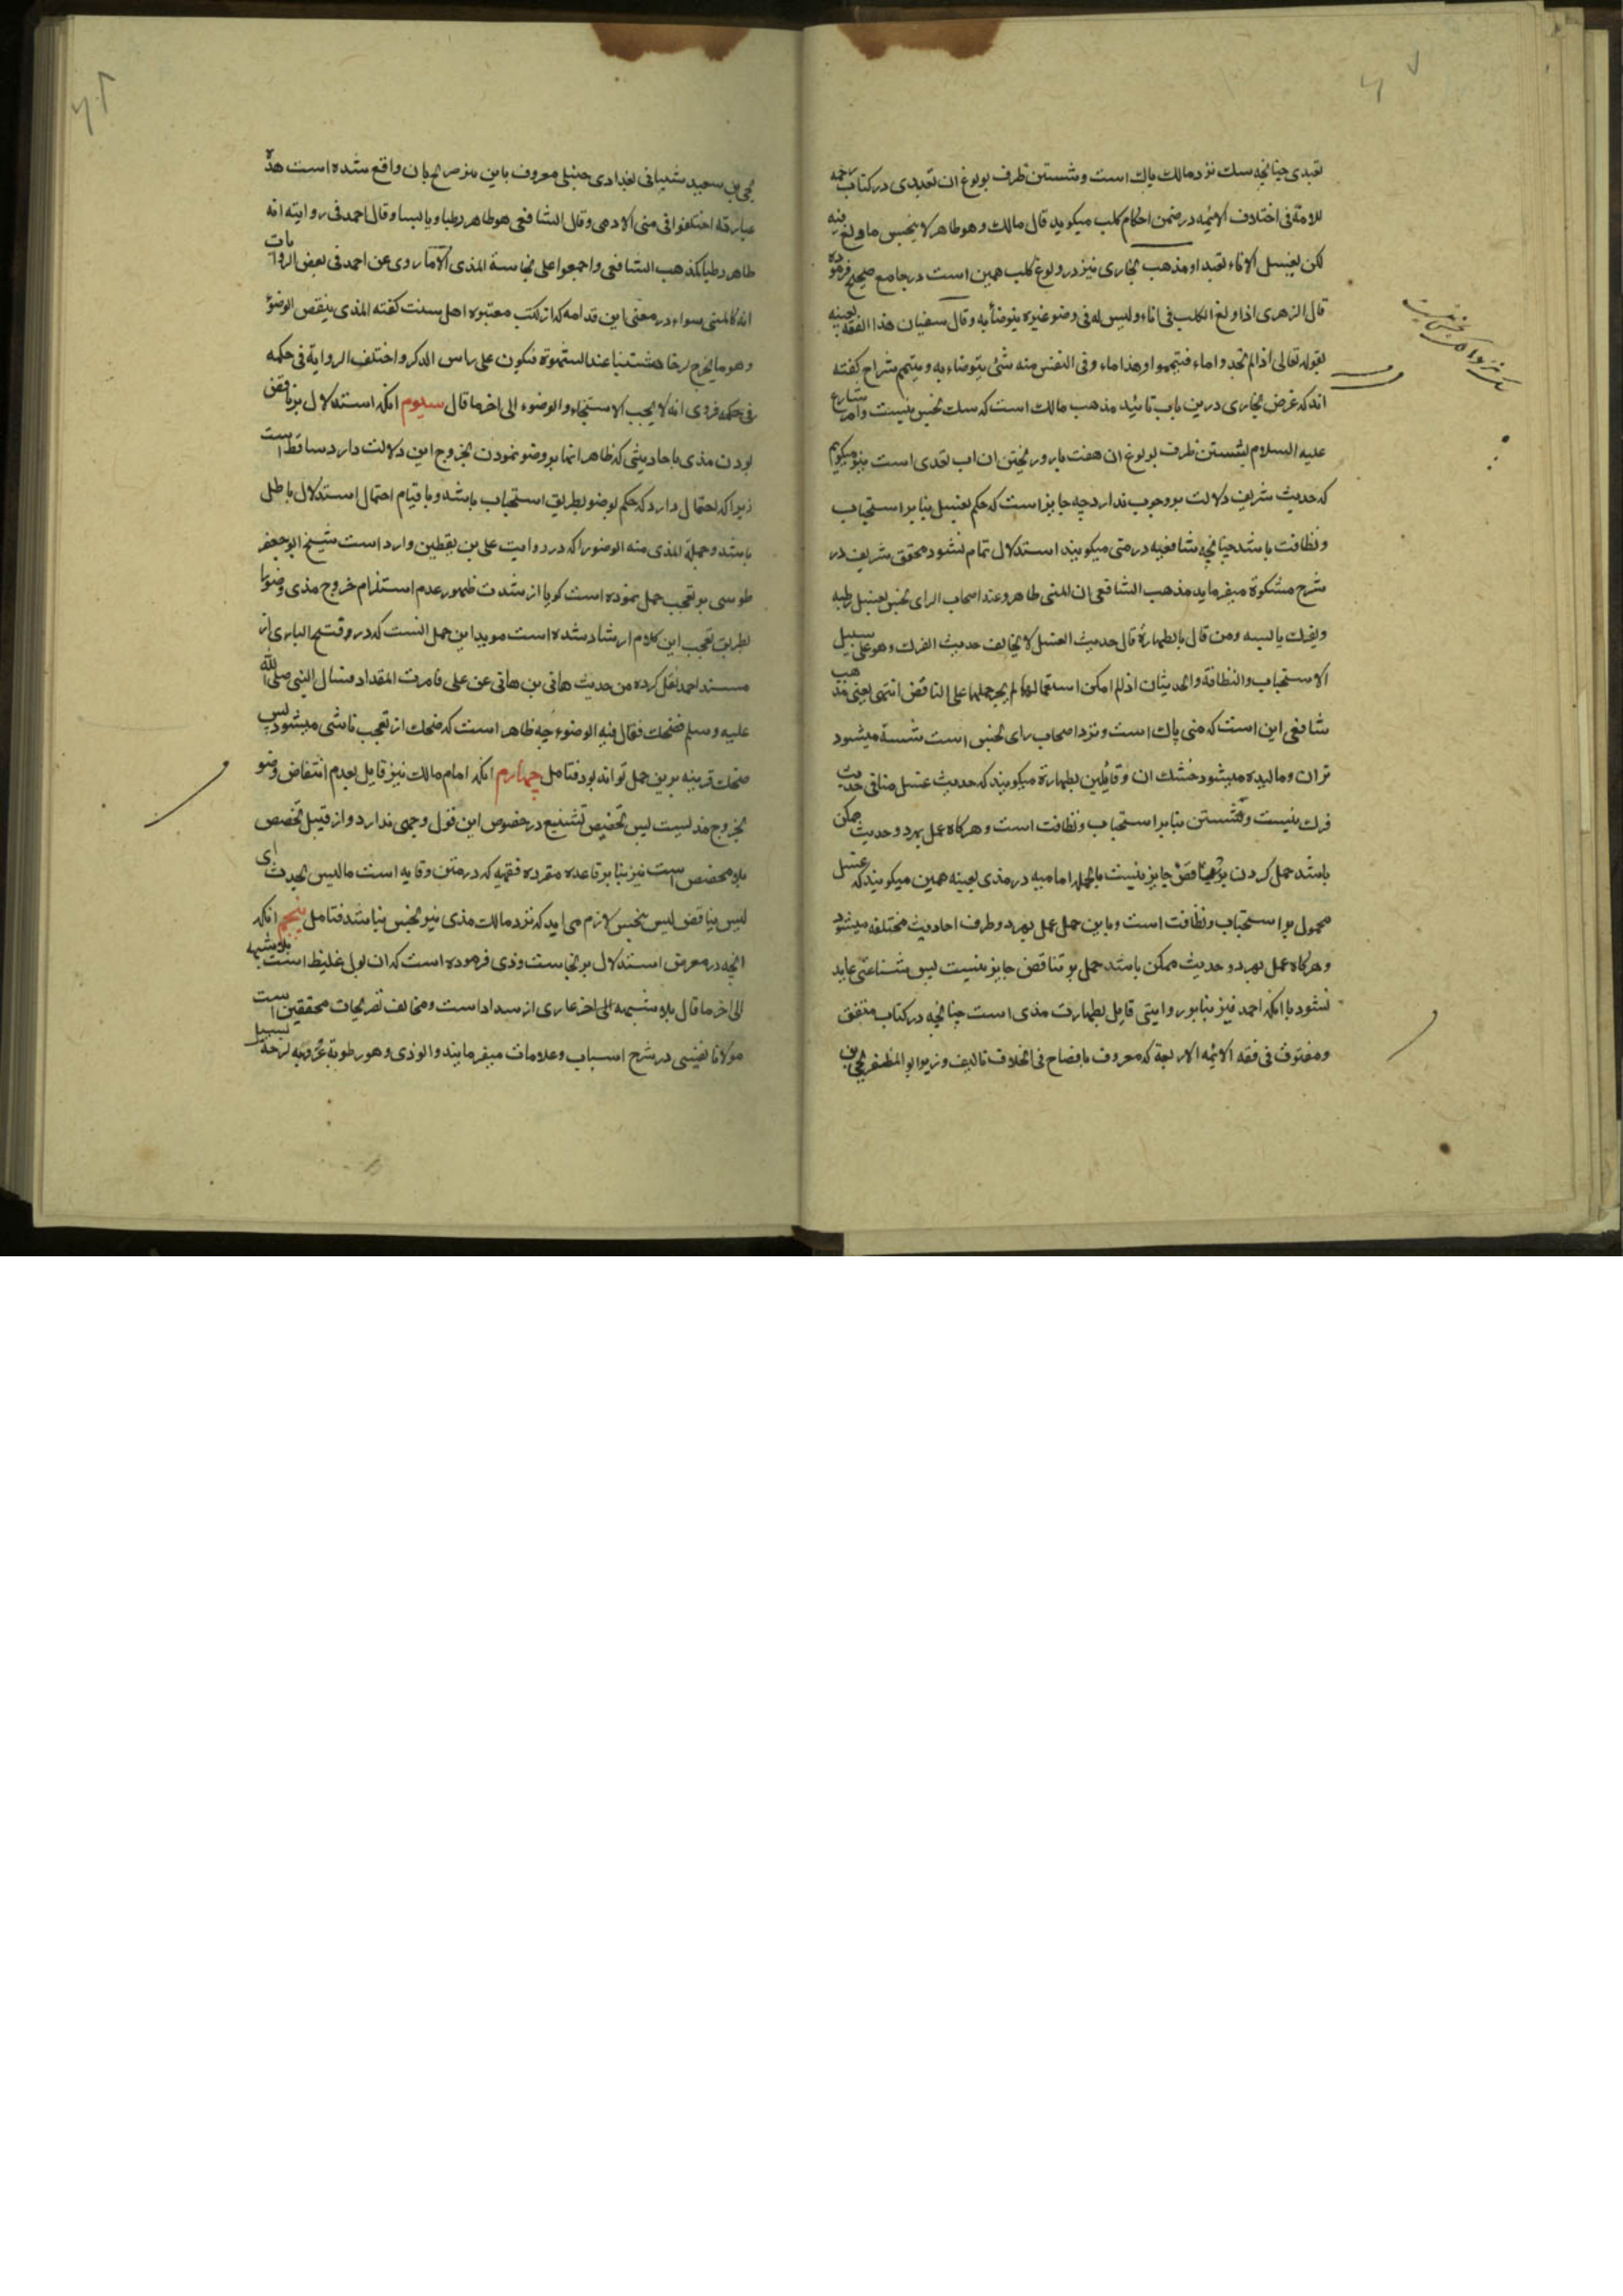 تعبدی چنانچه سك نزد مالك پاك است و شستن ظرف بولوغ ان تعبدی در كتاب رحمه
للامة فی اختلاف الائمه در ضمن احكام كلب میكوید قال مالك وهو طاهر لا ینجس ما ولغ فیه
لكن یغسل الاناء تعبدا ومذهب بخاری نیز در ولوغ كلب همین است در جامع صحیح فرموده
قال الزهری اذا ولغ الكلب فی اناء ولیس له فی وضو غیره یتوضأ به وقال سفیان هذا الفقه بعینه
بقوله تعالی اذا لم تجدوا ماء فتیمموا وهذا ماء وفی النفس منه شیٔ یتوضاء به ویتیمم شراح كفته
اند كه غرض بخاری درین باب تائید مذهب مالك است كه سك نجس نیست وامر شارع
علیه السلام بشستن ظرف بولوغ ان هفت بار و ریختن ان اب تعبدی است میكویم
كه حدیث شریف دلالت بر وجوب ندارد چه جایز است كه حكم بغسل بنا بر استحباب
و نظافت باشد چنانچه شافعیه در منی میكویند استدلال تمام نشود محقق شریف در
شرح مشكوة میفرماید مذهب الشافعی ان المنی طاهر وعند اصحاب الرای نجس یغسل رطبه
ویفرك یابسه ومن قال بالطهارة قال حدیث الغسل لا یخالف حدیث الفرك وهو علی سبیل
الاستحباب والنظافة والحدیثان اذا امكن استعمالهما لم یجز حملهما علی التناقض انتهی یعنی مذهب
شافعی این است كه منی پاك است و نزد اصحاب رای نجس است شسته میشود
تر ان و مالیده میشود خشك ان و قایلین بطهارة میكویند كه حدیث غسل منافی حدیث
فرك نیست و شستن بنا بر استحباب و نظافت است و هركاه عمل بهر دو حدیث ممكن
باشد حمل كردن بر تناقض جایز نیست بالجمله امامیه در مذی بعینه همین میكویند كه غسل
محمول بر استحباب و نظافت است و باین حمل عمل بهر دو طرف احادیث مختلفه میشود
و هركاه عمل بهر دو حدیث ممكن باشد حمل بر تناقض جایز نیست پس شناعتی عاید
نشود با انكه احمد نیز بنا بر روایتی قایل بطهارت مذی است چنانچه در كتاب متفق
ومفترق فی فقه الائمه الاربعة كه معروف بافصاح فی الخلاف تالیف وزیر ابو المظفر یحیی بن
یحیی بن سعید شیبانی بغدادی حنبلی معروف باین تصریح بان واقع شده است هذه
عبارته اختلفوا فی منی الادمی وقال الشافعی هو طاهر رطبا ویابسا وقال احمد فی روایته انه
طاهر رطبا كمذهب الشافعی واجمعوا علی نجاسة المذی الا ما روی عن احمد فی بعض الروایات
انه كالمنی سواء در مغنی ابن قدامه كه از كتب معتبره اهل سنت كفته المذی ینقض الوضوٴ
وهو ما یخرج لزجا عند الشهوة فیكون علی راس الذكر واختلف الروایة فی حكمه
فی حكمه فروی انه لا یجب الاستنجاء والوضوء الی اخر ما قال سیوم انكه استدلال بر ناقض
بودن مذی باحادیثی كه ظاهر انها بر وضو نمودن بخروج این دلالت دارد ساقط است
زیرا كه احتمال دارد كه حكم بوضو بطریق استحباب باشد و با قیام احتمال استدلال باطل
باشد و جملة المذی منه الوضو را كه در روایت علی بن یقطین وارد است شیخ ابو جعفر
طوسی بر تعجب حمل نموده است كویا از شدت ظهور عدم استلزام خروج مذی وضو را
بطریق تعجب این كلام ارشاد شده است موید این حمل انست كه در فتح الباری از
مسند احمد نقل كرده من حدیث هانی بن هانی عن علی فامرت المقداد فسال النبی صلی الله
علیه وسلم فضحك فقال فیه الوضوء چه ظاهر است كه ضحك از تعجب ناشی میشود پس
ضحك قرینه برین حمل تواند بود فتامل چهارم انكه امام مالك نیز قایل بعدم انتقاض وضو
بخروج مذیست پس تخصیص تشنیع در خصوص این قول وجهی ندارد و از قبیل تخصیص
بلا مخصص است نیز بنا بر قاعده مقرره فقهیه كه در متن وقایه است ما لیس بحدث ای
لیس بناقض لیس بنجس لازم می اید كه نزد مالك مذی نیز نجس نباشد فتامل پنجم انكه
انچه در معرض استدلال بر نجاست وذی فرموده است كه ان بول غلیظ است بلا شبهه
الی اخر ما قال بلا شبهه الی اخر عاری از سداد است و مخالف تصریحات محققین است
مولانا نفیسی در شرح اسباب و علامات میفرمایند والوذی وهو رطوبة لزجة تسیل